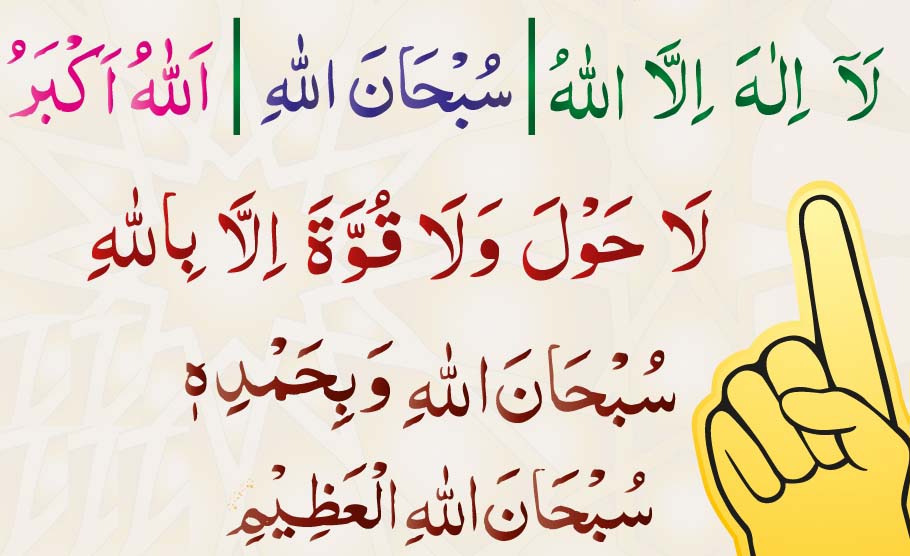 لَآ اِلٰهَ اِلَّا اللّٰهُ | سُبْحَانَ اللّٰهِ | اَللّٰهُ اَكْبَرُ
لَا حَوْلَ وَلَا قُوَّةَ اِلَّا بِاللّٰهِ
سُبْحَانَ اللّٰهِ وَبِحَمْدِهٖ
سُبْحَانَ اللّٰهِ الْعَظِيْمِ